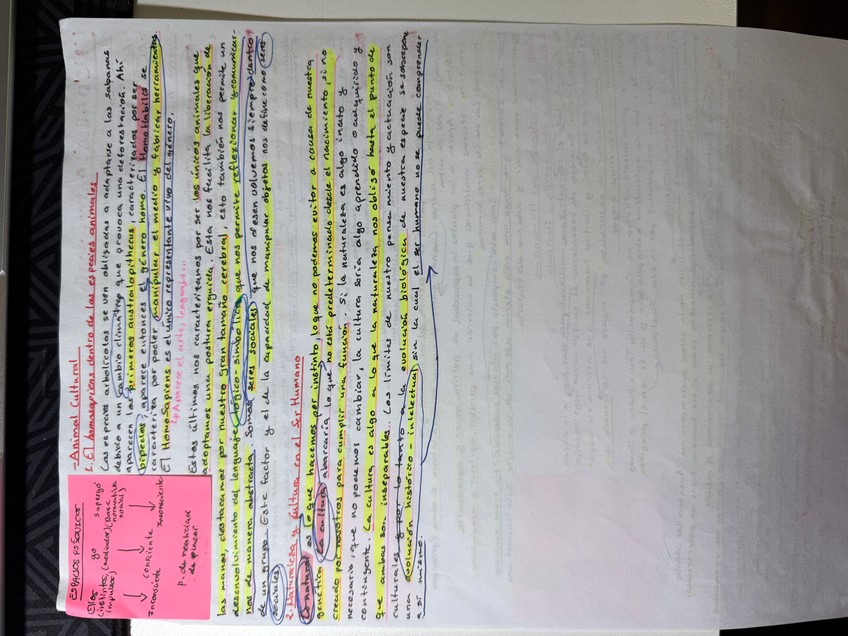 -Animal Cultural
1. El homosapiens dentro de las especies animales
Las especies arbolícolas se ven obligadas a adaptarse a las sabanas
debido a un cambio climático que provoca una deforestación. Ahí
aparecen los primeros australopithecus, caracterizados por ser
bípedos, aparece entonces el género homo. El Homo Habilis se
caracteriza por poder manipular el medio y fabricar herramientas.
El Homo Sapiens es el único representante vivo del género.
Aparece el arte, lenguaje...
Estos últimos nos caracterizamos por ser los únicos animales que
adoptamos una postura erguida. Esta nos facilita la liberación de
las manos, destacamos por nuestro gran tamaño cerebral, esto también nos permite un
desenvolvimiento del lenguaje lógico, simbólico que nos permite reflexionar y comunicar-
nos de manera abstracta. Somos seres sociales que nos desenvolvemos siempre dentro
de un grupo. Este factor y el de la capacidad de manipular objetos nos define como seres
sociales.
2. Naturaleza y cultura en el Ser Humano
Lo natural es lo que hacemos por instinto, lo que no podemos evitar a causa de nuestra
genética. La cultura abarcaría lo que no está predeterminado desde el nacimiento, sino
creado por nosotros para cumplir una función. Si la naturaleza es algo inato y
necesario, que no podemos cambiar, la cultura sería algo aprendido o adquirido y
contingente. La cultura es algo a lo que la naturaleza nos obligó hasta el punto de
que ambas son inseparables. Los límites de nuestro pensamiento y actuación son
culturales y por lo tanto a la evolución biológica de nuestra especie se sobrepone
una evolución histórico-intelectual sin la cual el ser humano no se puede comprender
a sí mismo.
ESPACIOS PSÍQUICOS
Ello yo superyó
(instintos, (mediador) (base
impulsos) normativa
social)
Inconsciente consciente Inconsciente
P. de realidad
de placer